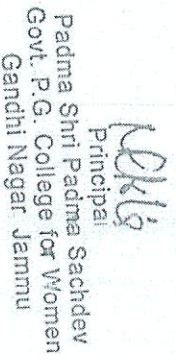 Principal
Padma Shri Padma Sachdev
Govt. P.G. College for Women
Gandhi Nagar Jammu